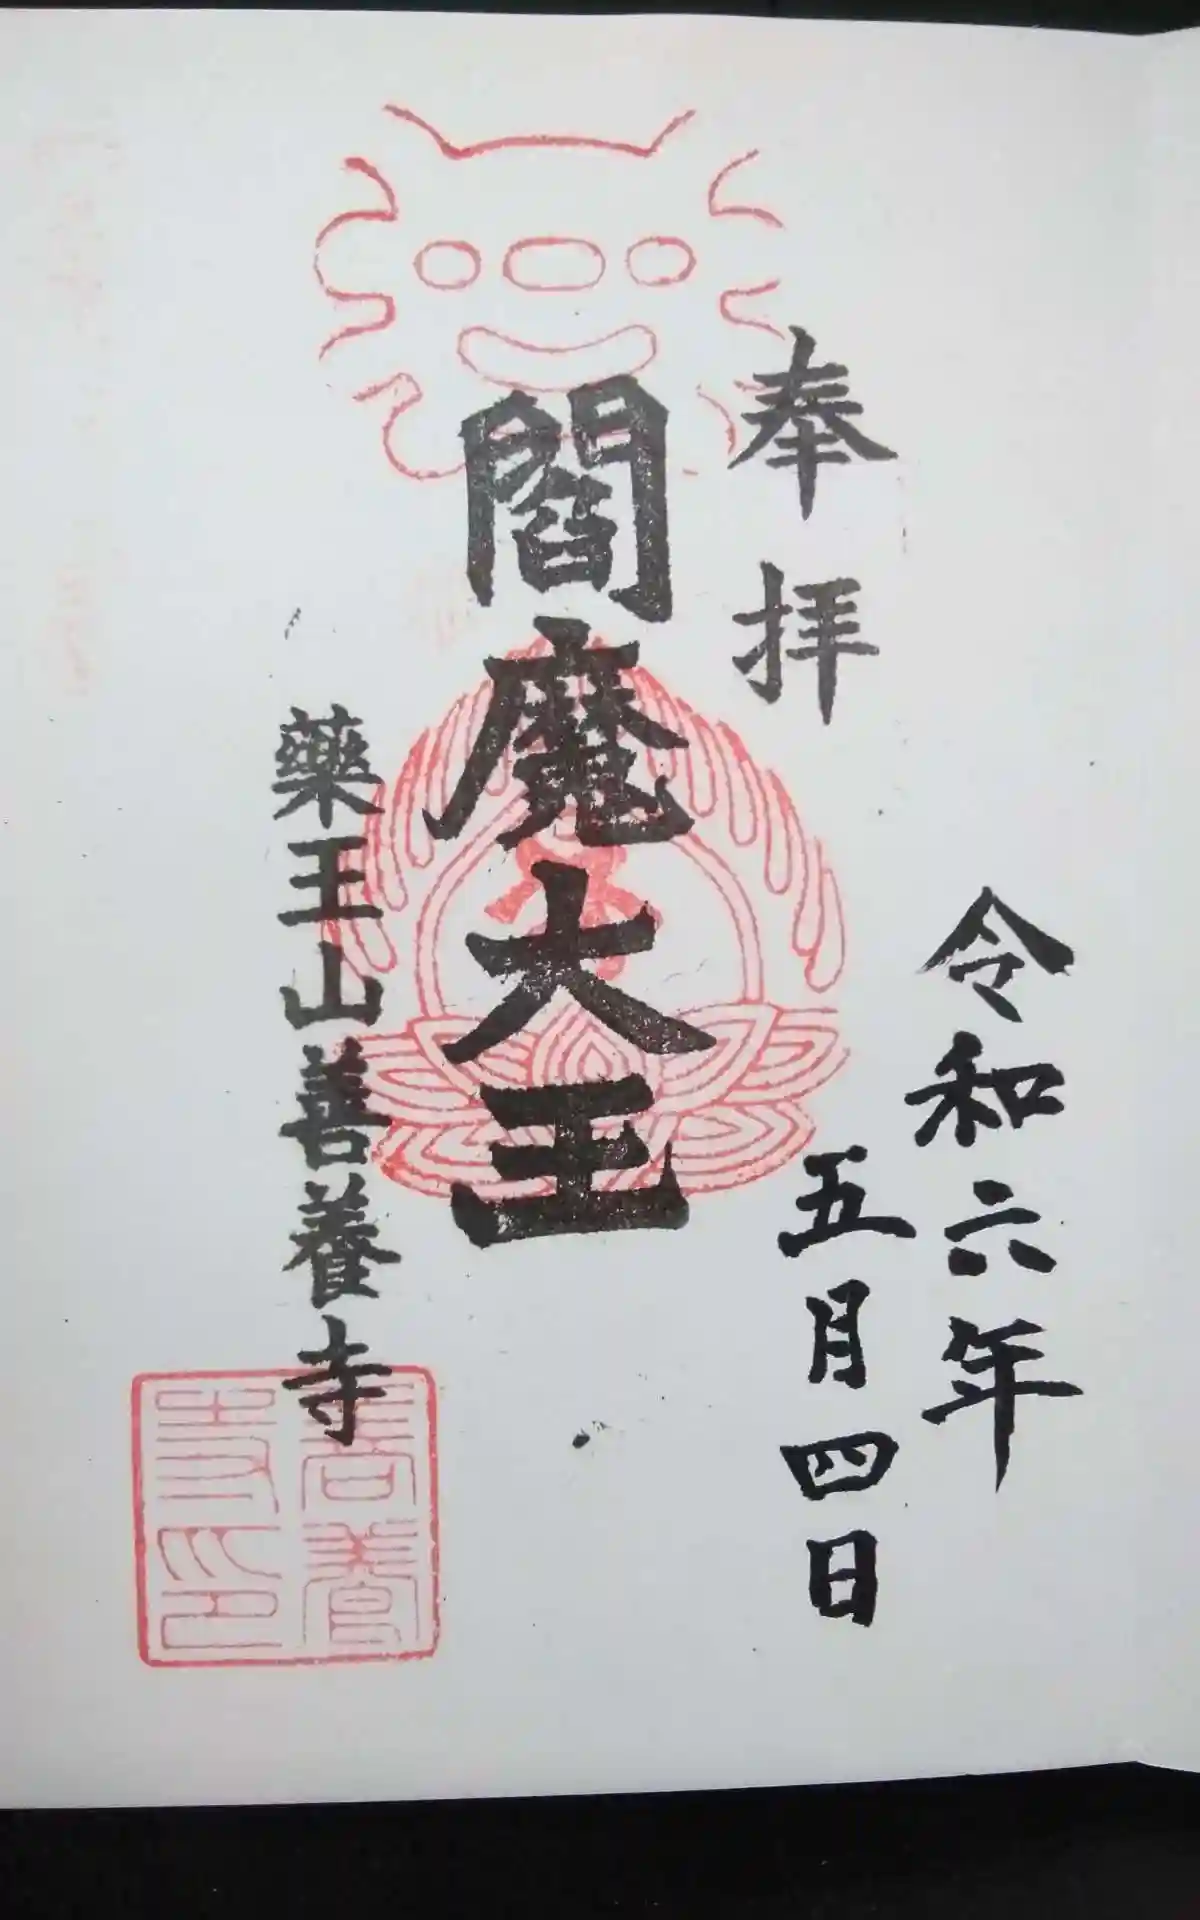 奉拝
令和六年
五月四日
閻魔大王
藥王山善養寺
善養
寺印